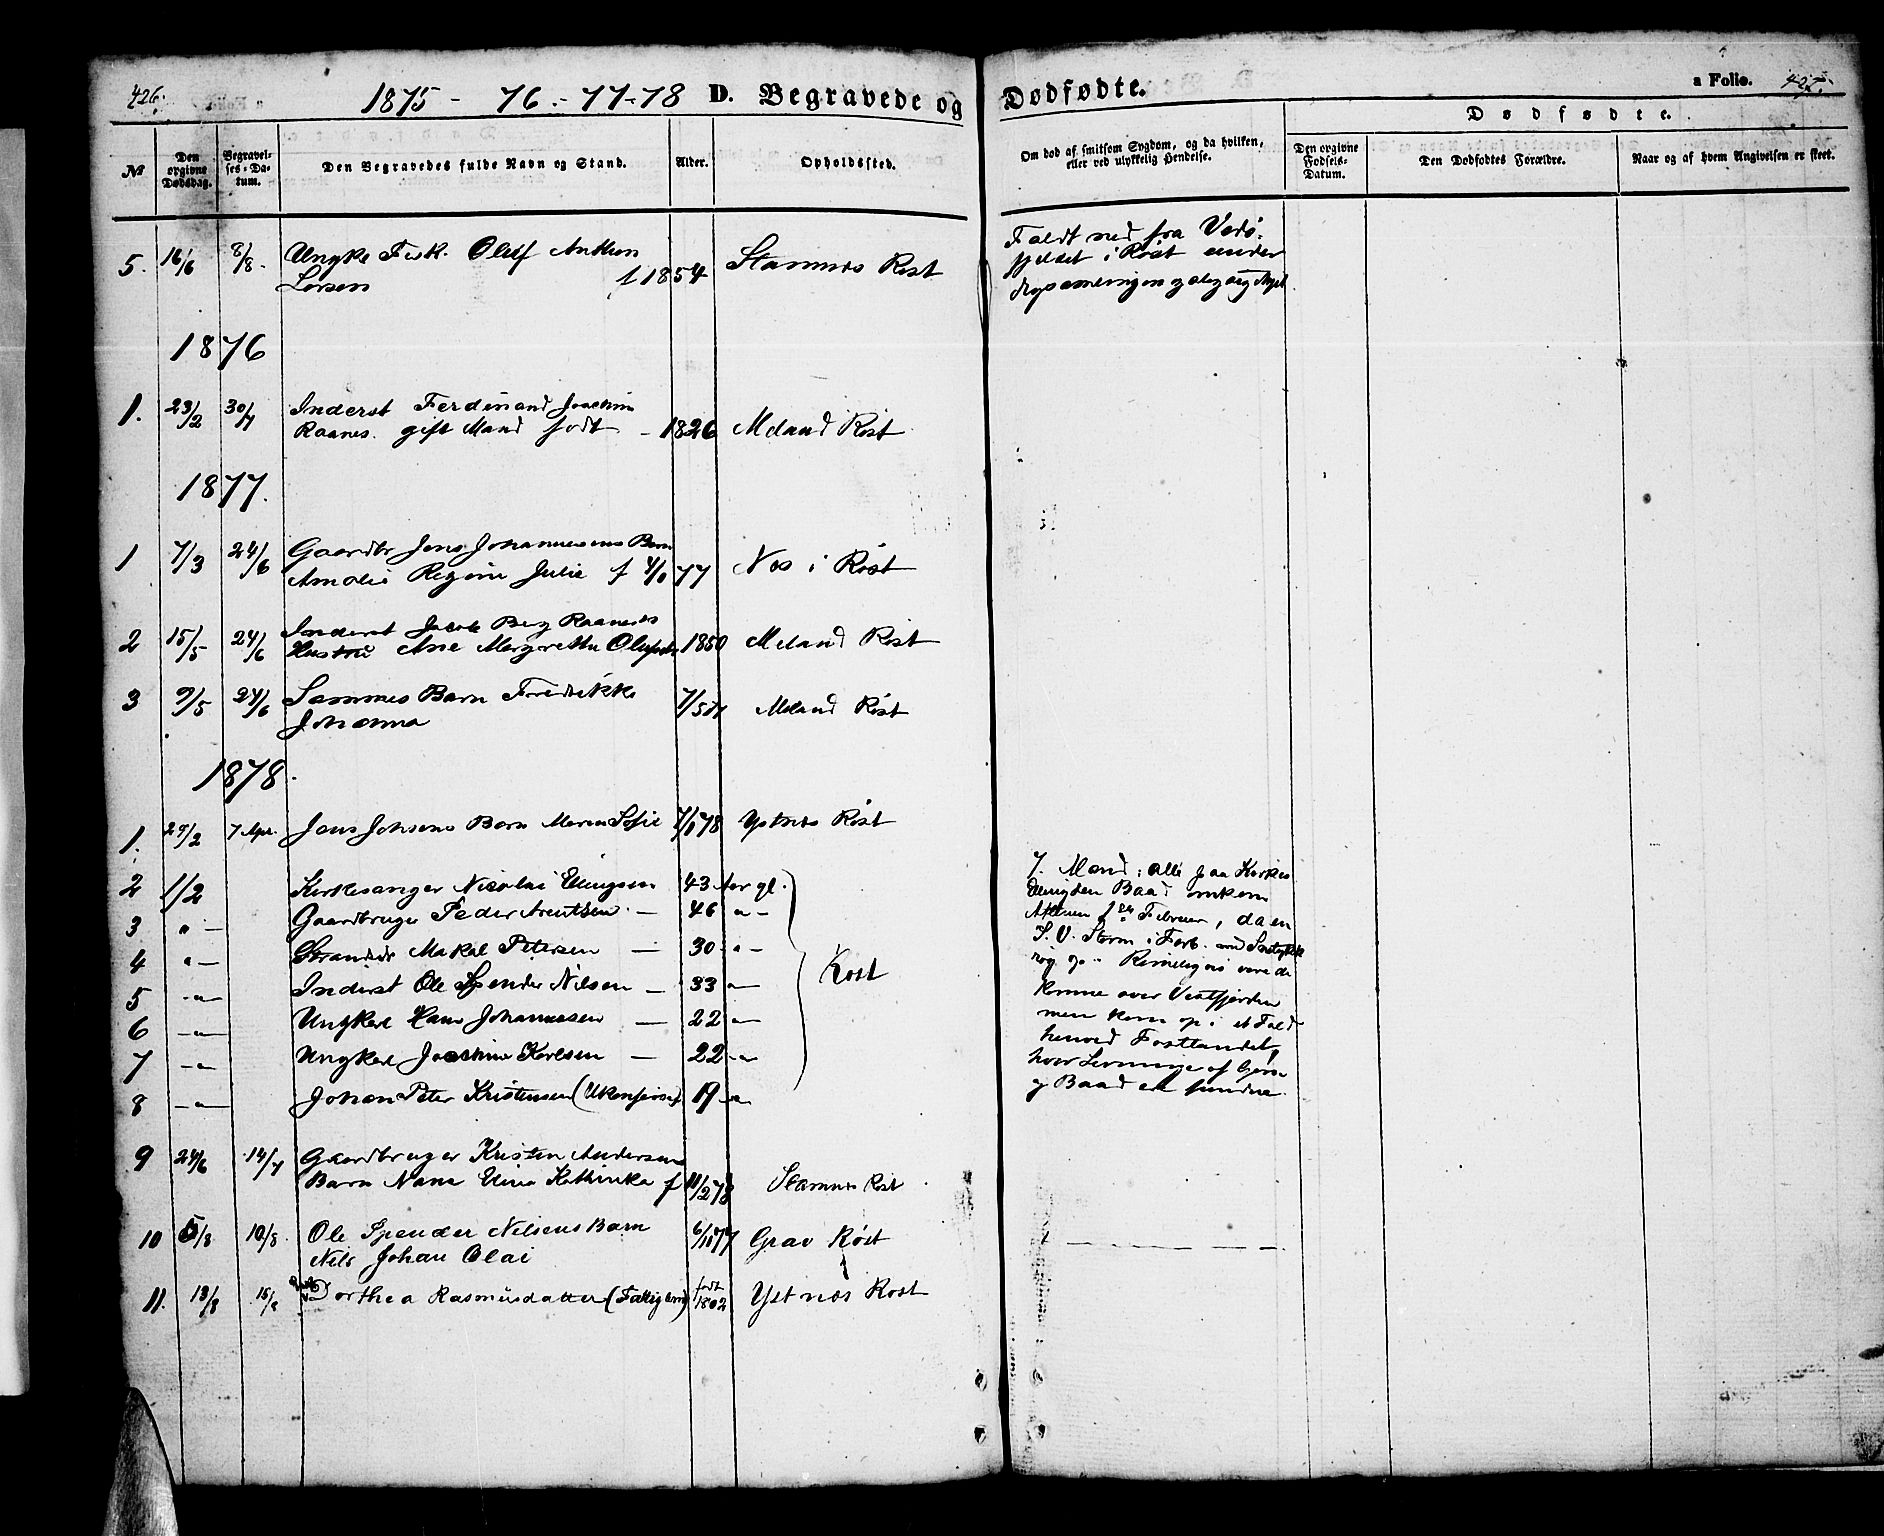 426.
1875 - 76 - 77-78 D. Begravede og Dødfødte.
a Folio. 427.
Dødfødte.
No
Den opgivne Dødsdag.
Begravelses-Datum.
Den Begravedes fulde Navn og Stand.
Alder.
Opholdssted.
Om død af smitsom Sygdom, og da hvilken, eller ved ulykkelig Hendelse.
Den opgivne Fødsels-Datum.
Den Dødfødtes Forældre.
Naar og af hvem Angivelsen er skeet.
5. 16/6 8/8. Ungke Fisk. Oluf Anthon
Larsen f 1854 Stamnes Røst
Faldt ned fra Vedø-
fjeldet i Røst under
1876
1. 23/2 30/7 Inderst Ferdinand Joachim
Raanes. gift Mand født - 1826 Meland Røst
1877.
1 7/3 24/6 Gaardbr Jens Johannesens Barn
Amalie Regine Julie f 4/1 77 Nes i Røst
2 15/5 24/6 Inderst Jacob Berg Raanes's
Hustru Ane Margrethe Olufsdr 1850 Meland Røst
3 9/5 24/6 Sammes Barn Fredrikke
Johanna 7/5 77 Meland Røst
1878.
1. 27/2 7 Apr. Jens Johsens Barn Maren Sofie 7/1 78 Ystnes Røst
2 1/2 Kirkesanger Nicolai Ellingsen 43 Aar gl.
3 " - Gaardbruger Peder Arentsen - 46 " -
4 " - Strandsidr Makal Petersen - 30 - " -
5 - " - Inderst Ole Spender Nilsen - 33 " -
6 - " - Ungkarl Hans Johannesen - 22 " -
7 - " Ungkarl Joachim Karlsen - 22 - "
8 - " - Johan Peter Kristensen 19 - "
Røst
7. Mænd; alle paa Kirkes.
Ellingsen Baad omkom
Aftenen 1ste Februar, da en
S. V. Storm i Forb. med
røg op. Rimeligvis vare de
komne over Vestfjorden
men kom op i et Fald
henved Fastlandet,
hvor Levninger af
og Baad ere fundne.
9 24/6 14/7 Gaardbruger Kristen Andersens
Barn Nana Elina Kathinka f 11/2 78 Stamnes Røst
10 5/8 10/8. Ole Spender Nilsens Barn
Nils Johan Olai 6/11 77 Grav Røst
11. 13/8 15/8 Dorthea Rasmusdatter (Fattiglem) født 1802 Ystnes Røst